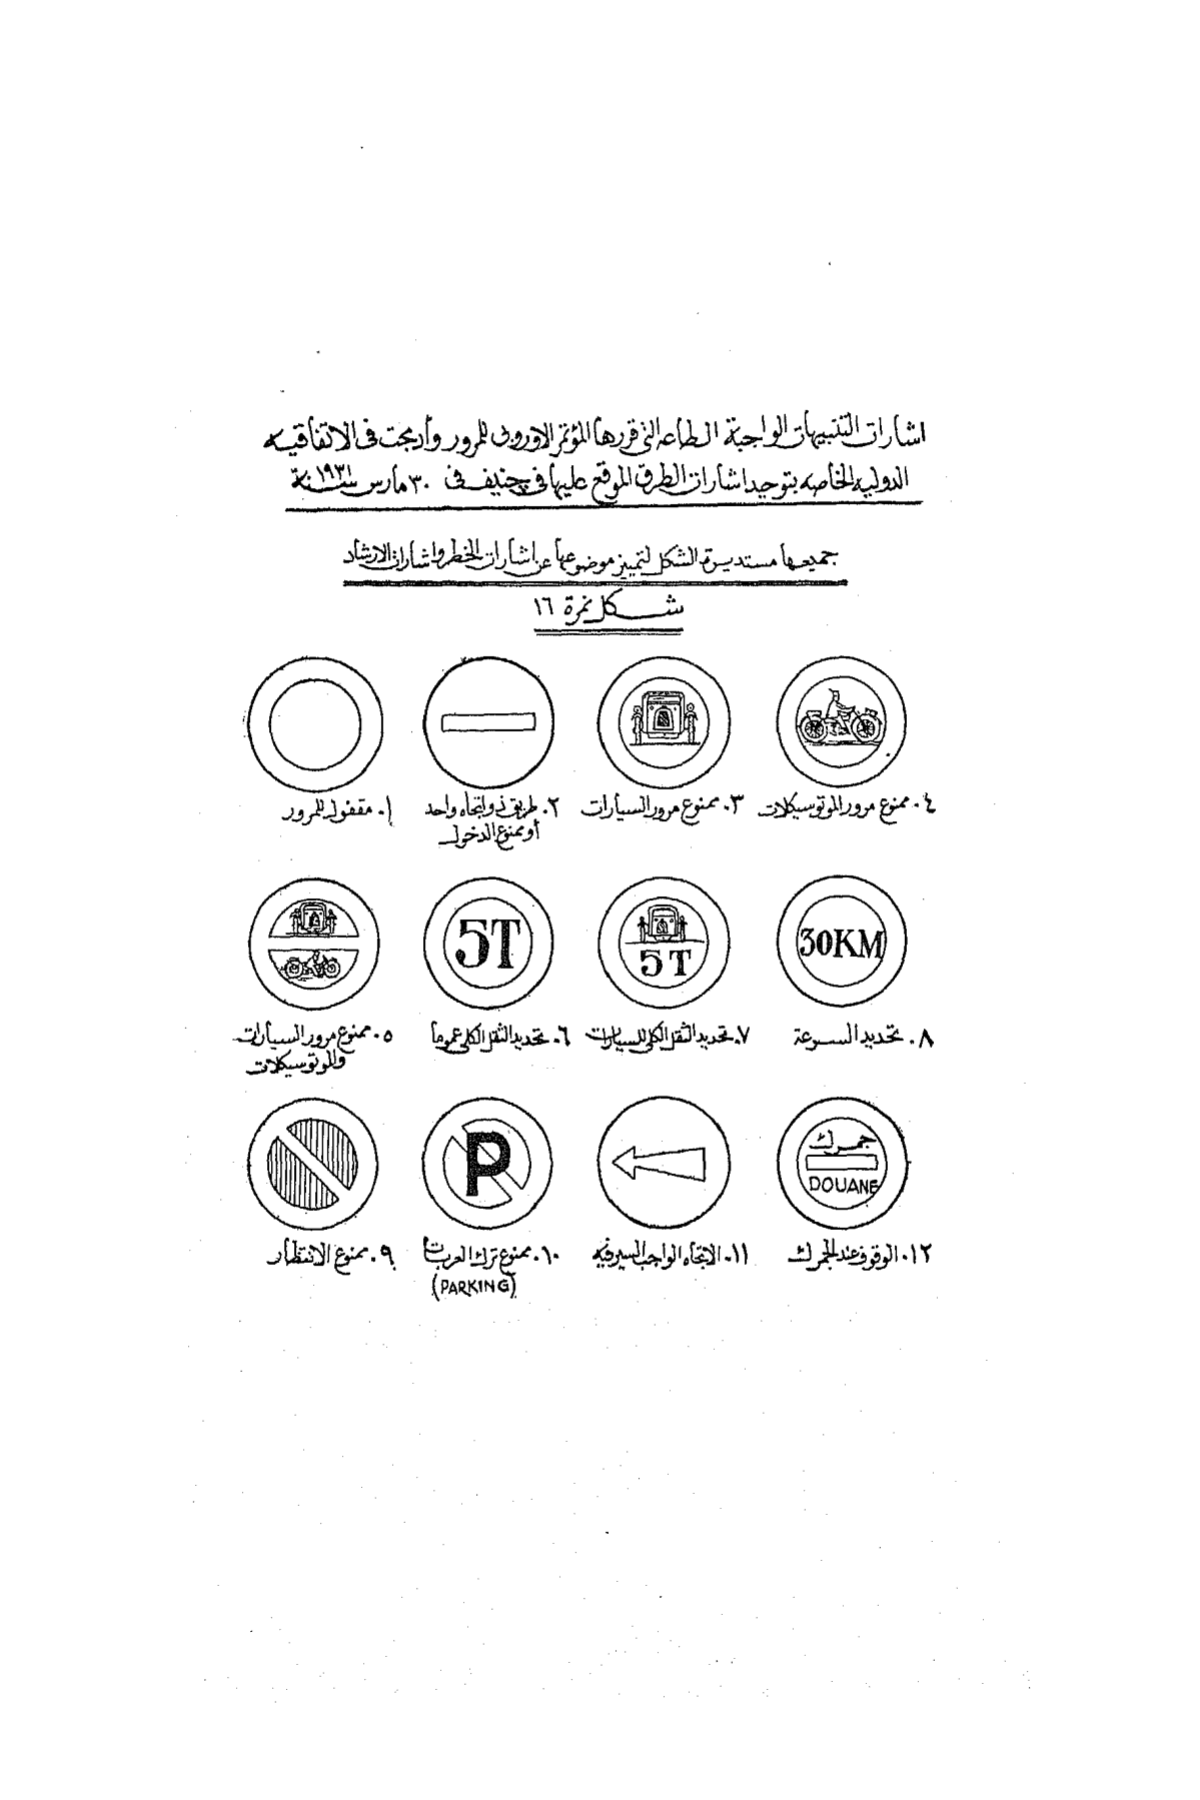 اشارات التنبيهات الواجبة الطاعه التى قررها المؤتمر الاوروبى للمرور وأدمجت فى الاتفاقيه
الدوليه الخاصه بتوحيد اشارات الطرق الموقع عليها فى چنيف فى ٣٠ مارس سنة ١٩٣١
جميعها مستديرة الشكل لتمييز موضوعها عن اشارات الخطر واشارات الارشاد
شكل نمرة ١٦
١. مقفول للمرور
٢. طريق ذو اتجاه واحد
أو ممنوع الدخول
٣. ممنوع مرور السيارات
٤. ممنوع مرور الموتوسيكلات
5T
5T
30KM
٥. ممنوع مرور السيارات
والموتوسيكلات
٦. تحديد الثقل الكلى عموما
٧. تحديد الثقل الكلى للسيارات
٨. تحديد السرعة
P
جمرك
DOUANE
٩. ممنوع الانتظار
١٠. ممنوع ترك العربات
(PARKING)
١١. الاتجاه الواجب السير فيه
١٢. الوقوف عند الجمرك